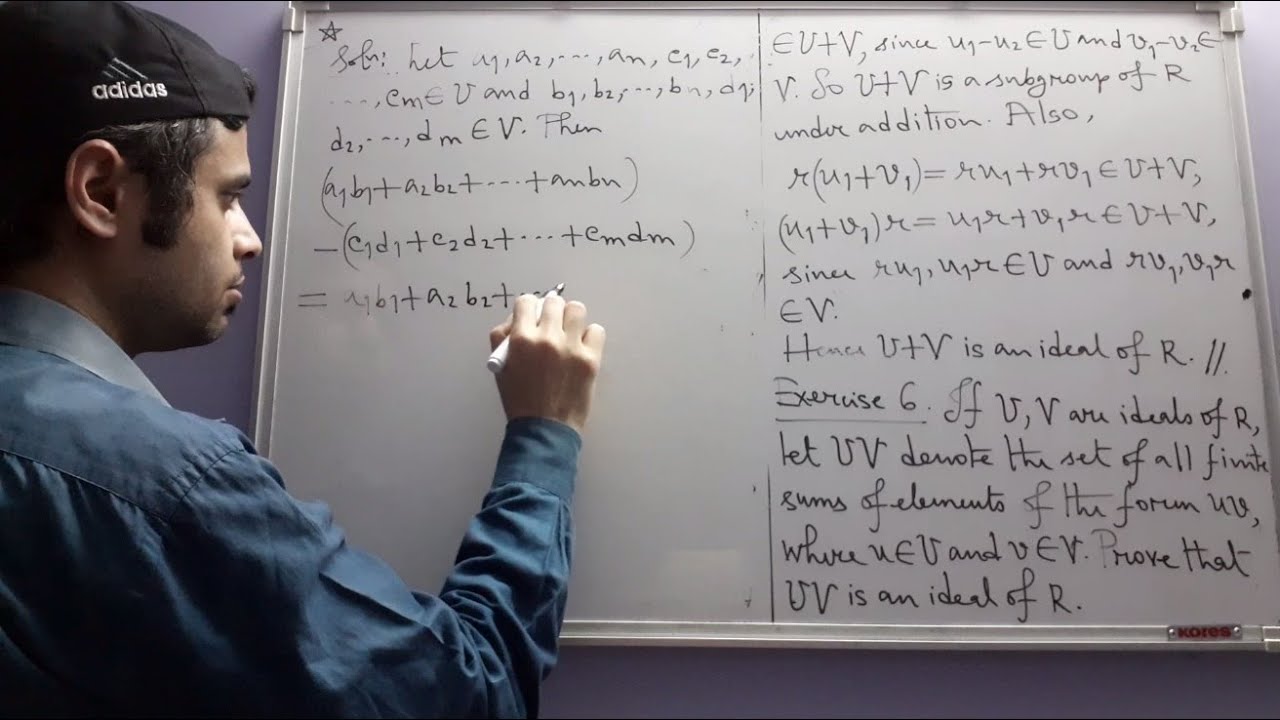 adidas
☆
Soln: Let a1, a2, ..., an, c1, c2,
..., cm ∈ U and b1, b2, ..., bn, d1,
d2, ..., dm ∈ V. Then
(a1b1+a2b2+ ... +anbn)
-(c1d1+c2d2+ ... +cmdm)
= a1b1+a2b2+...
∈ U+V, since u1-u2 ∈ U and v1-v2 ∈
V. So U+V is a subgroup of R
under addition. Also,
r(u1+v1)= ru1+rv1 ∈ U+V,
(u1+v1)r= u1r+v1r ∈ U+V,
since ru1, u1r ∈ U and rv1, v1r
∈ V.
Hence U+V is an ideal of R. //
Exercise 6. If U, V are ideals of R,
let UV denote the set of all finite
sums of elements of the form uv,
where u ∈ U and v ∈ V. Prove that
UV is an ideal of R.
KORES